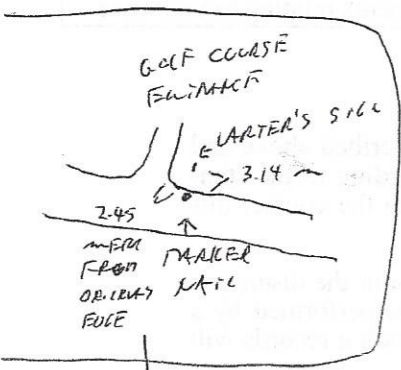 GOLF COURSE
ENTRANCE
CARTER'S SIGN
3.14 m
2.45
METER
FROM
DRIVEWAY
EDGE
MARKER
NAIL